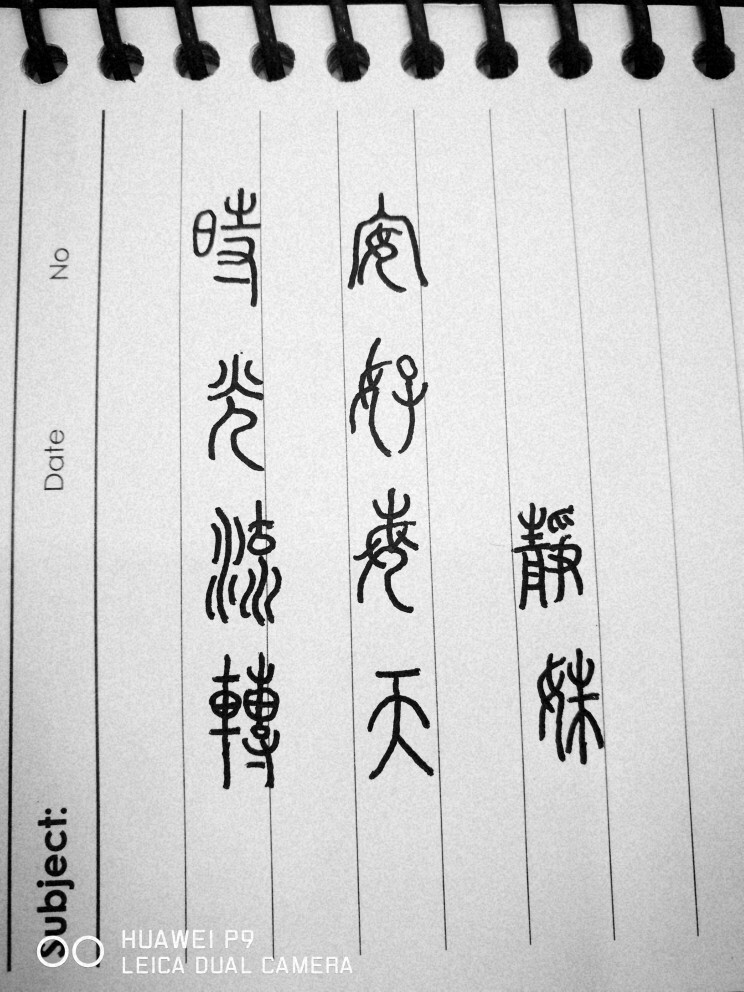 時光流轉
安好每天
靜姝
Subject:
Date
No
HUAWEI P9
LEICA DUAL CAMERA